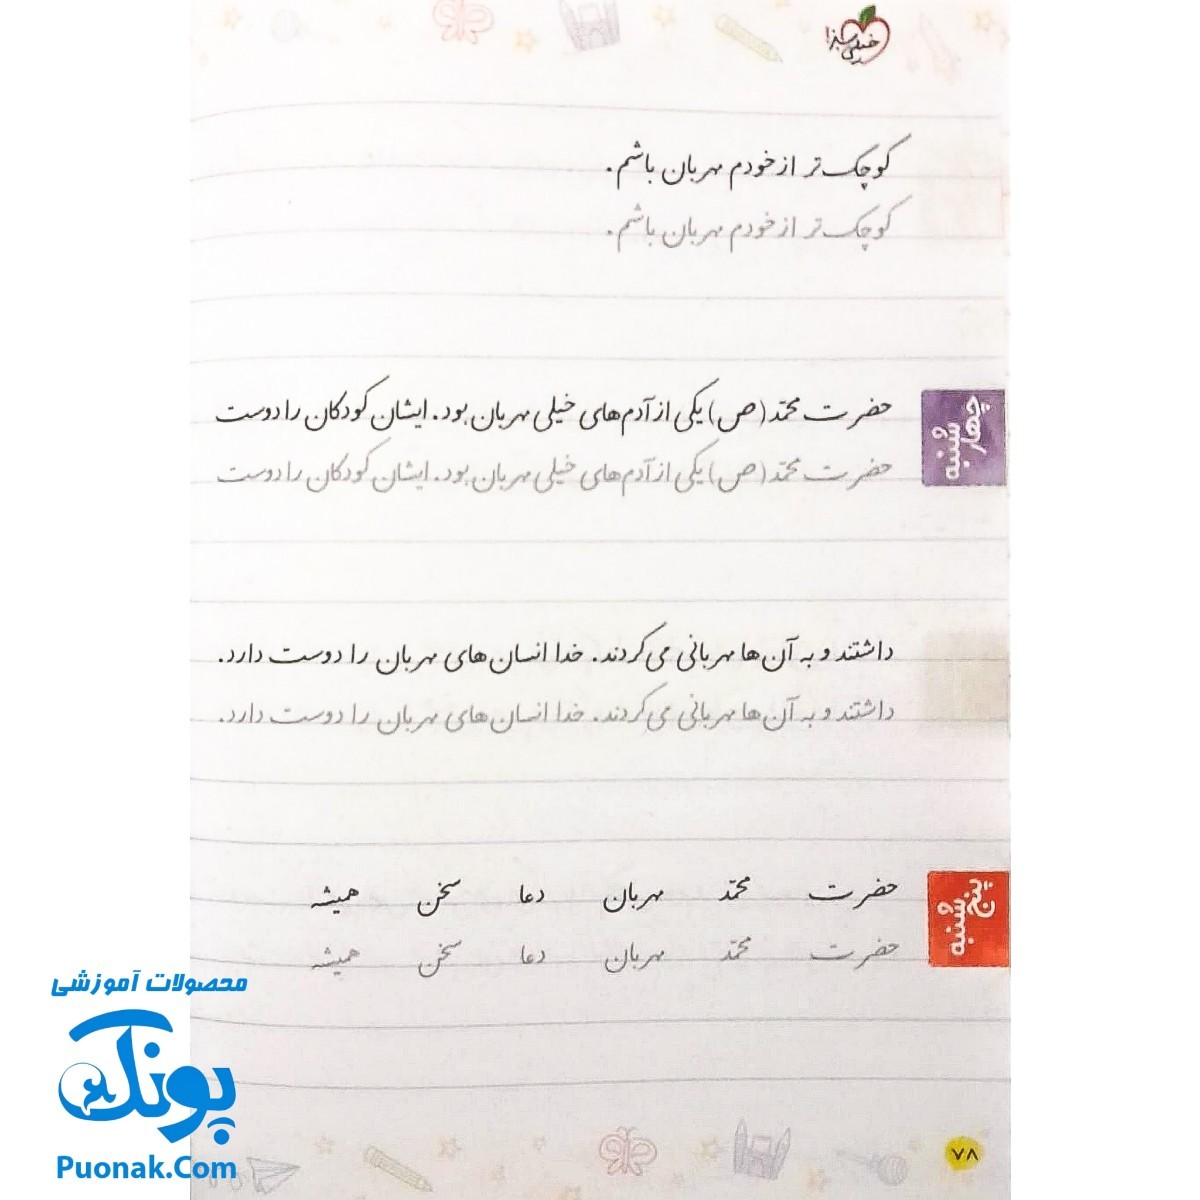 خیلی سبز
کوچک‌تر از خودم مهربان باشم.
کوچک‌تر از خودم مهربان باشم.
چهارشنبه
حضرت محمّد (ص) یکی از آدم‌های خیلی مهربان بود. ایشان کودکان را دوست
حضرت محمّد (ص) یکی از آدم‌های خیلی مهربان بود. ایشان کودکان را دوست
داشتند و به آن‌ها مهربانی می‌کردند. خدا انسان‌های مهربان را دوست دارد.
داشتند و به آن‌ها مهربانی می‌کردند. خدا انسان‌های مهربان را دوست دارد.
پنج‌شنبه
حضرت محمّد مهربان دعا سخن همیشه
حضرت محمّد مهربان دعا سخن همیشه
محصولات آموزشی
پونک
Puonak.Com
۷۸